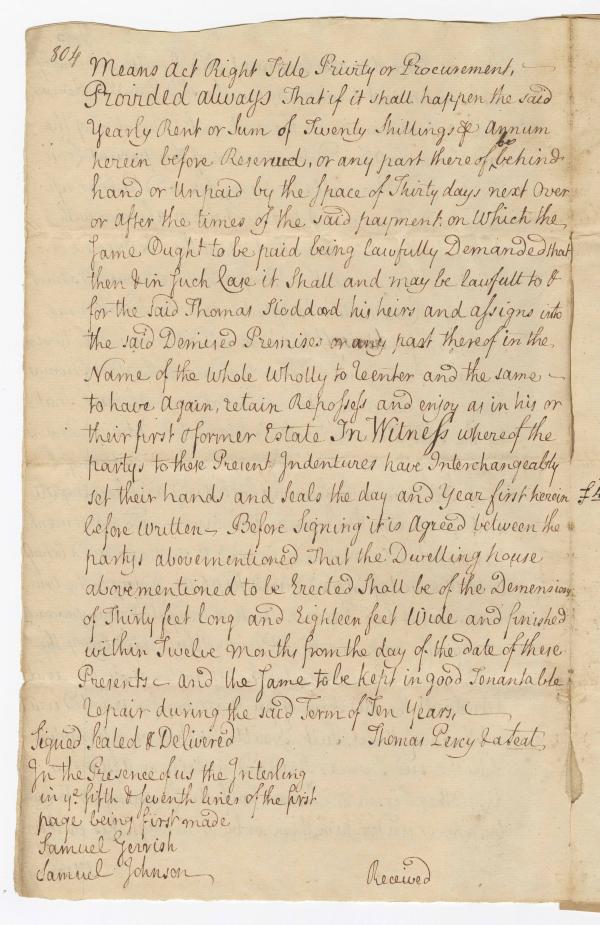 804
Means Act Right Title Privity or Procurement,
Provided always That if it shall happen the said
Yearly Rent or Sum of Twenty Shillings ⅌ Annum
herein before Reserved, or any part there of be behind
hand or Unpaid by the Space of Thirty days next Over
or after the times of the said payment on Which the
Same Ought to be paid being lawfully Demanded that
then & in Such Case it Shall and may be lawfull to &
for the Said Thomas Stoddard his heirs and assigns into
the said Demised Premises or any part thereof in the
Name of the Whole Wholly to reenter and the same
to have Again, retain Repossess and enjoy as in his or
their first & former Estate In Witness whereof the
partys to these Present Indentures have Interchangeably
set their hands and Seals the day and Year first herein
before Written Before Signing it is Agreed between the
partys abovementioned That the Dwelling house
abovementioned to be Erected Shall be of the Demension
of Thirty feet long and Eighteen feet Wide and finished
within Twelve Months from the day of the date of these
Presents and the Same to be kept in good Tenantable
repair during the said Term of Ten Years,
Signed Sealed & Delivered Thomas Percy & a Seal
In the Presence of us the Interling
in ye. fifth & Seventh lines of the first
page being first made
Samuel Gerrish
Samuel Johnson Received